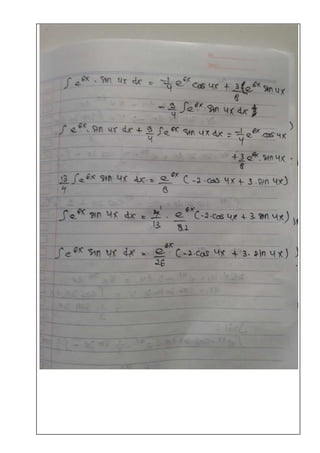 ∫ e^6x · sin 4x dx = -1/4 e^6x cos 4x + 3/8 e^6x sin 4x
- 9/4 ∫ e^6x · sin 4x dx
∫ e^6x · sin 4x dx + 9/4 ∫ e^6x sin 4x dx = -1/4 e^6x cos 4x
+ 3/8 e^6x · sin 4x ·
13/4 ∫ e^6x sin 4x dx = e^6x/8 (-2·cos 4x + 3·sin 4x)
∫ e^6x sin 4x dx = 4/13 · e^6x/82 (-2·cos 4x + 3·sin 4x)
∫ e^6x sin 4x dx = e^6x/26 (-2·cos 4x + 3·sin 4x)